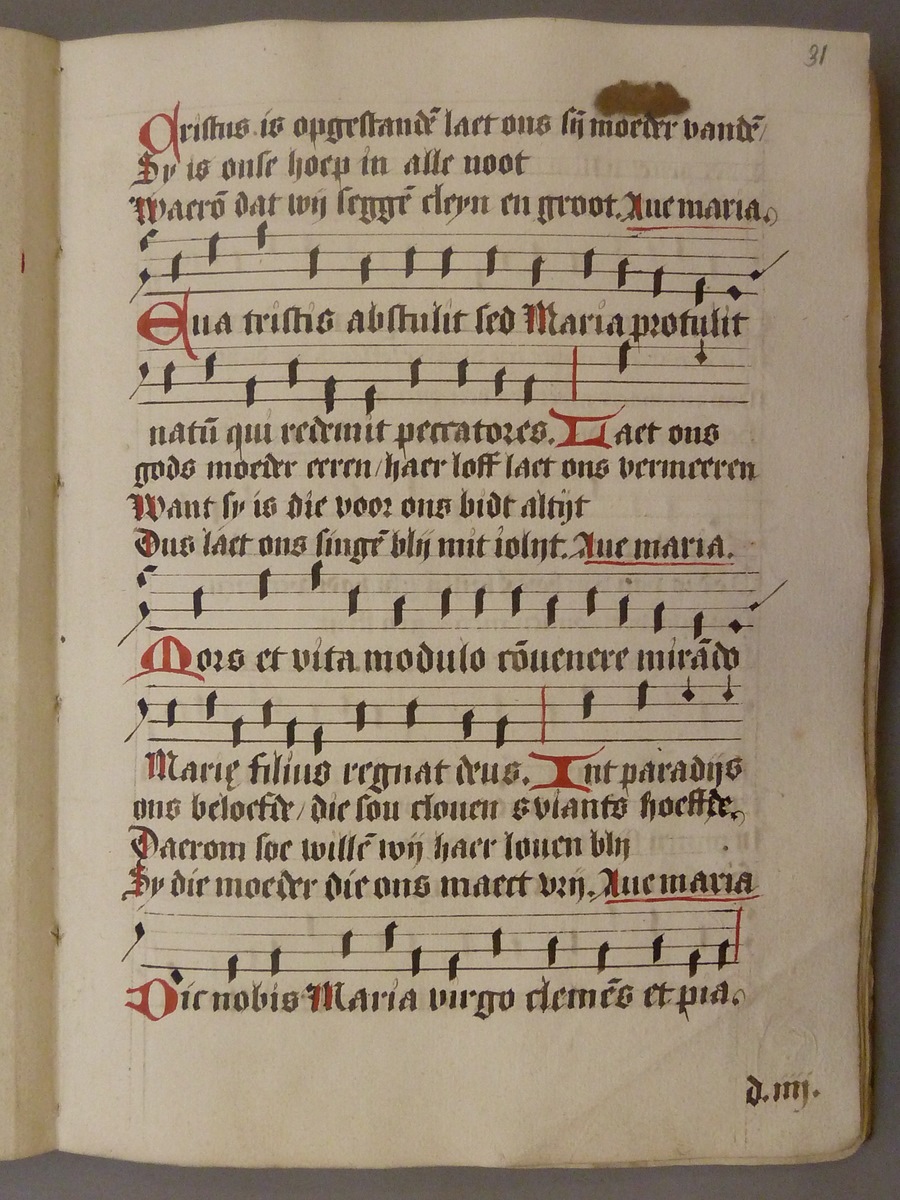 31
Cristus is opgestandē laet ons sij moeder vandē/
Sy is onse hoep in alle noot
Waerō dat wij seggē cleyn en groot. Aue maria.
Eua tristis abstulit sed Maria protulit
natū qui redemit peccatores. Laet ons
gods moeder eeren/haer loff laet ons vermeeren
Want sy is die voor ons bidt altijt
Dus laet ons singē blij mit iolijt. Aue maria.
Mors et vita modulo cōuenere mirādo
Marię filius regnat deus. Int paradijs
ons beloefde/die sou clouen sviants hoeffde.
Daerom soe willē wij haer louen blij
Sy die moeder die ons maect vrij. Aue maria
Dic nobis Maria virgo clemēs et pia.
d.iiij.